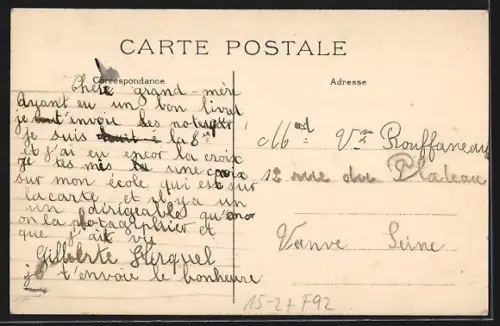 CARTE POSTALE
Correspondance
Adresse
Chère grand-mère
Ayant eu un bon livret
je t'envoie les notes
je suis à la 8e
et j'ai eu encor la croix
je tes mis la une croix
sur mon école qui est sur
la carte et il y a un
un dirigeables qu'encor
on la photographier et
que j'ait vu
Gilberte
je t'envoie le bonheure
Md Vve Rouffaneau
12 rue du Plateau
Vanve Seine
15-2+ F92